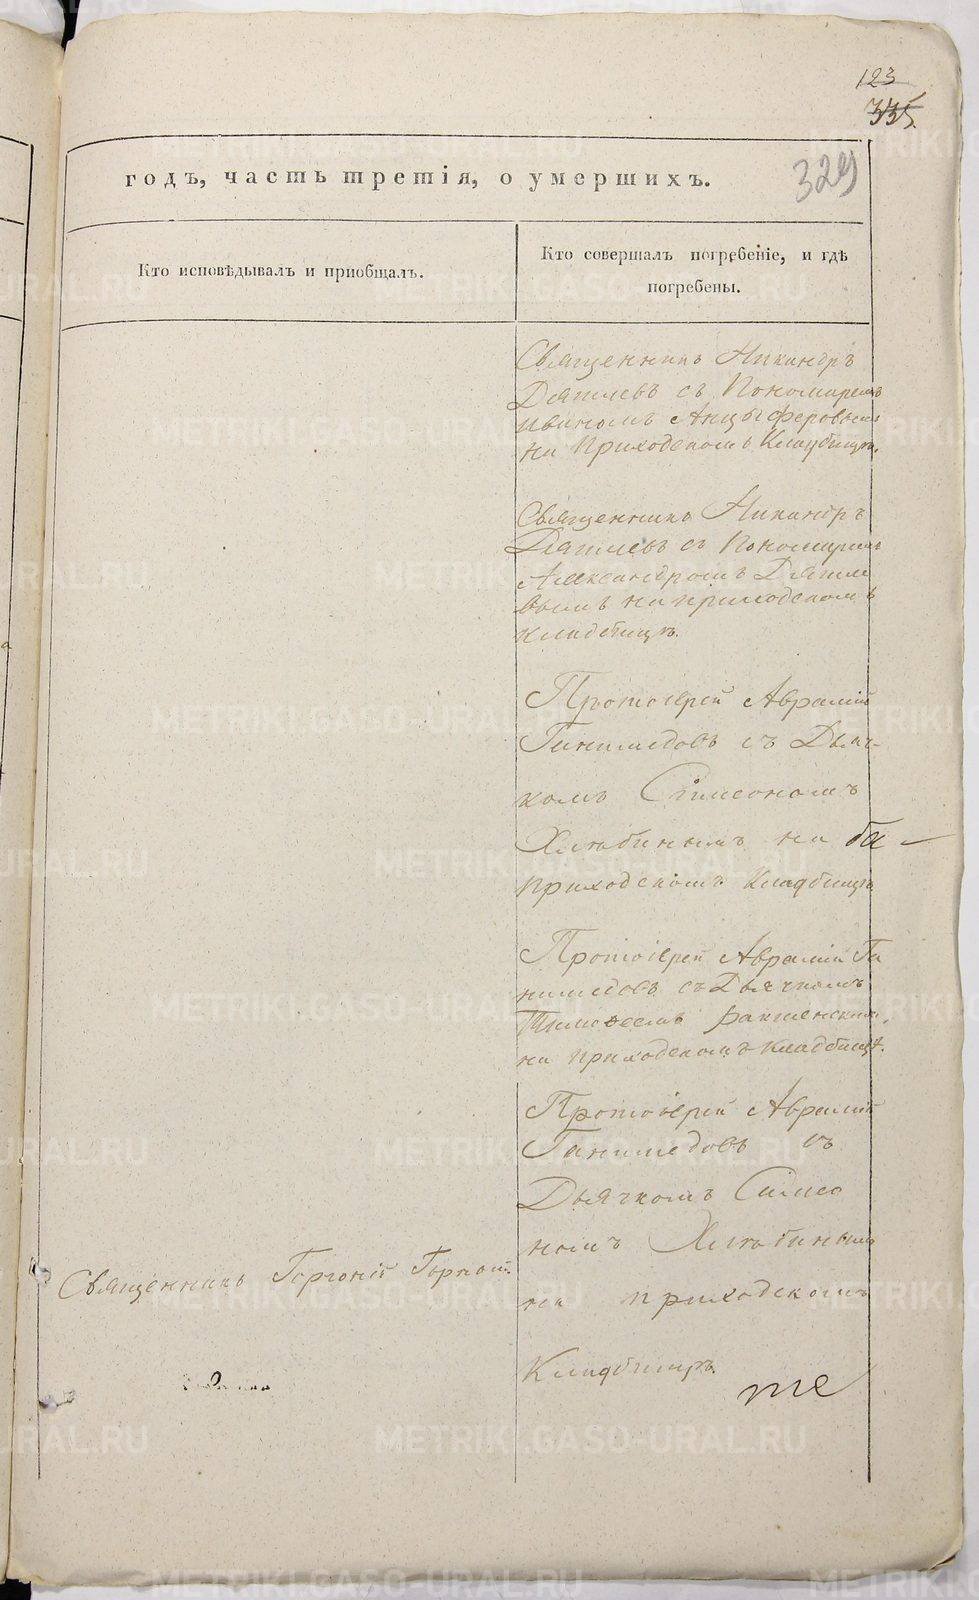 123
335
329
годъ, часть третія, о умершихъ.
Кто исповѣдывалъ и пріобщалъ.
Кто совершалъ погребеніе, и гдѣ
погребены.
Священникъ Никандръ
Дягилевъ съ Пономаремъ
Иваномъ Анцыферовымъ
на Приходскомъ Кладбищѣ.
Священникъ Никандръ
Дягилевъ съ Пономаремъ
Александромъ Дягиле
вымъ на приходскомъ
кладбищѣ.
Протоіерей Аврамій
Ганимедовъ съ Дьяч-
комъ Сімеономъ
Хлѣбинымъ на
приходскомъ Кладбищѣ
Протоіерей Аврамій Га
нимедовъ съ Дьячкомъ
Тимофеемъ
на приходскомъ кладбищѣ.
Протоіерей Аврамій
Ганимедовъ съ
Дьячкомъ Симео
номъ Хлѣбинымъ
на приходскомъ
Кладбищѣ.
Священникъ Горгоній
METRIKI.GASO-URAL.RU